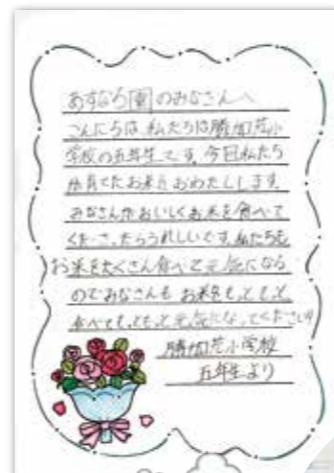 あすなろ園のみなさんへ
こんにちは。私たちは勝加茂小
学校の五年生です。今回私たち
が育てたお米をおわたしします。
みなさんがおいしくお米を食べて
くださったらうれしいです。私たちも
お米をたくさん食べて元気になる
のでみなさんもお米をもっともっと
食べてもっともっと元気になってください
勝加茂小学校
五年生より